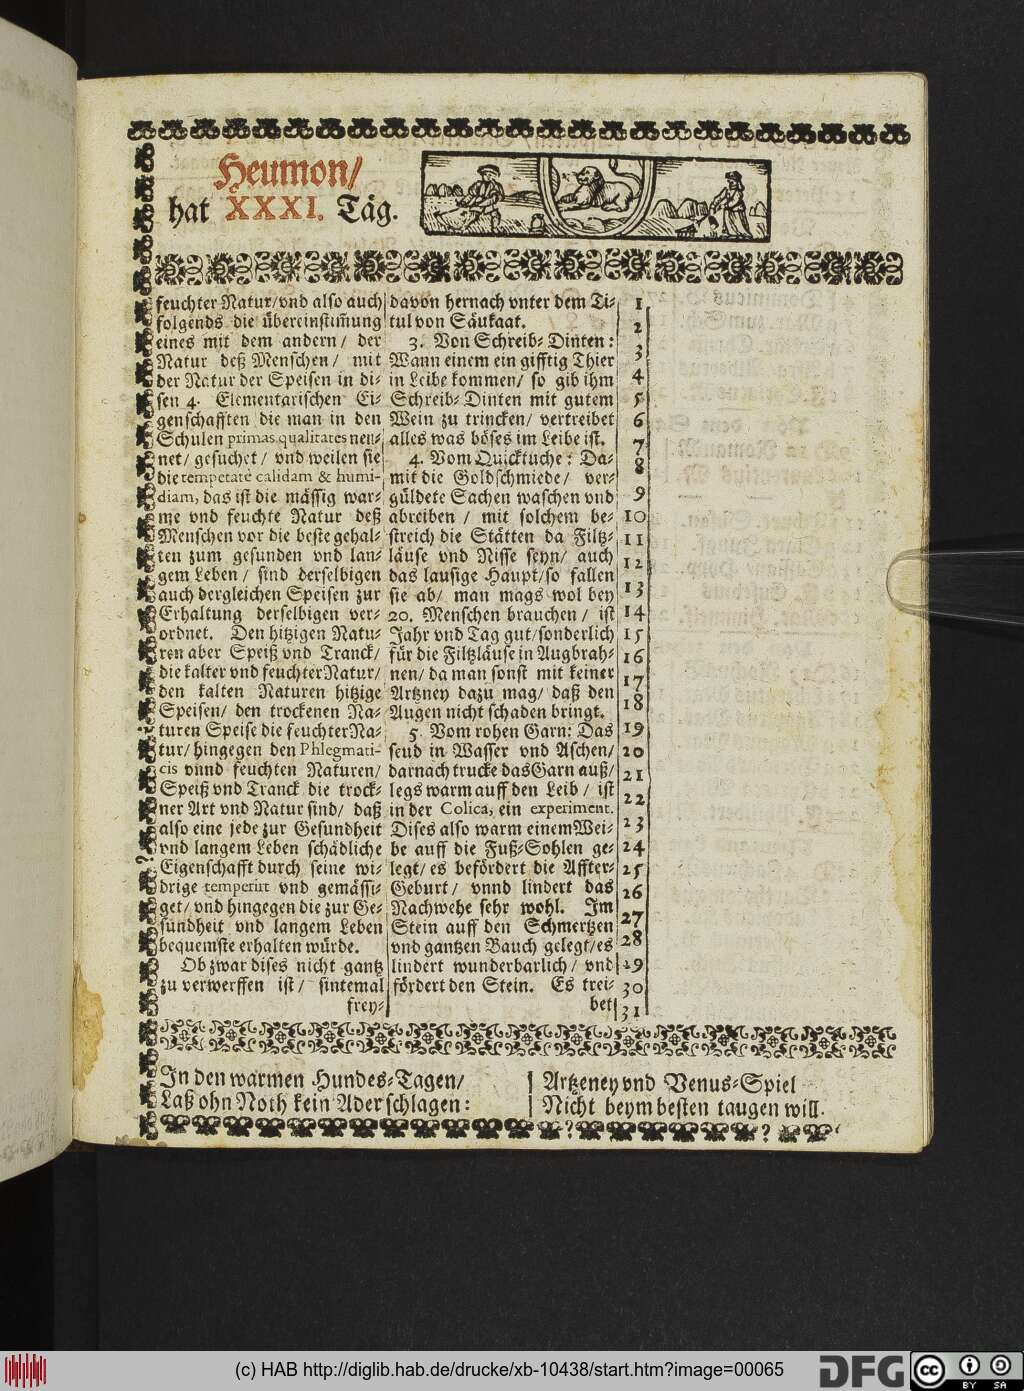 Heumon/
hat XXXI. Täg.
feuchter Natur/vnd also auch
folgends die übereinstim̃ung
eines mit dem andern/ der
Natur deß Menschen/ mit
der Natur der Speisen in di-
sen 4. Elementarischen Ei-
genschafften die man in den
Schulen primas qualitates nen-
net/ gesuchet/ vnd weilen sie
die temperatè calidam & humi-
diam, das ist die mässig war-
me vnd feuchte Natur deß
Menschen vor die beste gehal-
ten zum gesunden vnd lan-
gem Leben/ sind derselbigen
auch dergleichen Speisen zur
Erhaltung derselbigen ver-
ordnet. Den hitzigen Natu-
ren aber Speiß vnd Tranck/
die kalter vnd feuchter Natur/
den kalten Naturen hitzige
Speisen/ den trockenen Na-
turen Speise die feuchter Na-
tur/ hingegen den Phlegmati-
cis vnnd feuchten Naturen/
Speiß vnd Tranck die trock-
ner Art vnd Natur sind/ daß
also eine jede zur Gesundheit
vnd langem Leben schädliche
Eigenschafft durch seine wi-
drige temperirt vnd gemässi-
get/ vnd hingegen die zur Ge-
sundheit vnd langem Leben
bequemste erhalten würde.
Ob zwar dises nicht gantz
zu verwerffen ist/ sintemal
frey-
davon hernach vnter dem Ti-
tul von Säukaat.
3. Von Schreib-Dinten:
Wann einem ein gifftig Thier
in Leibe kommen/ so gib ihm
Schreib-Dinten mit gutem
Wein zu trincken/ vertreibet
alles was böses im Leibe ist.
4. Vom Quicktuche: Da-
mit die Goldschmiede/ ver-
güldete Sachen waschen vnd
abreiben/ mit solchem be-
streich die Stätten da Filtz-
läuse vnd Nisse seyn/ auch
das lausige Haupt/so fallen
sie ab/ man mags wol bey
20. Menschen brauchen/ ist
Jahr vnd Tag gut/sonderlich
für die Filtzläuse in Augbrah-
nen/ da man sonst mit keiner
Artzney dazu mag/ daß den
Augen nicht schaden bringt.
5. Vom rohen Garn: Das
seud in Wasser vnd Aschen/
darnach trucke das Garn auß/
legs warm auff den Leib/ ist
in der Colica, ein experiment.
Dises also warm einem Wei-
be auff die Fuß-Sohlen ge-
legt/ es befördert die Affter-
Geburt/ vnnd lindert das
Nachwehe sehr wohl. Im
Stein auff den Schmertzen
vnd gantzen Bauch gelegt/es
lindert wunderbarlich/ vnd
fördert den Stein. Es trei-
bet
1
2
3
4
5
6
7
8
9
10
11
12
13
14
15
16
17
18
19
20
21
22
23
24
25
26
27
28
29
30
31
In den warmen Hundes-Tagen/
Laß ohn Noth kein Ader schlagen:
Artzeney vnd Venus-Spiel
Nicht beym besten taugen will.
(c) HAB http://diglib.hab.de/drucke/xb-10438/start.htm?image=00065
DFG
CC BY SA